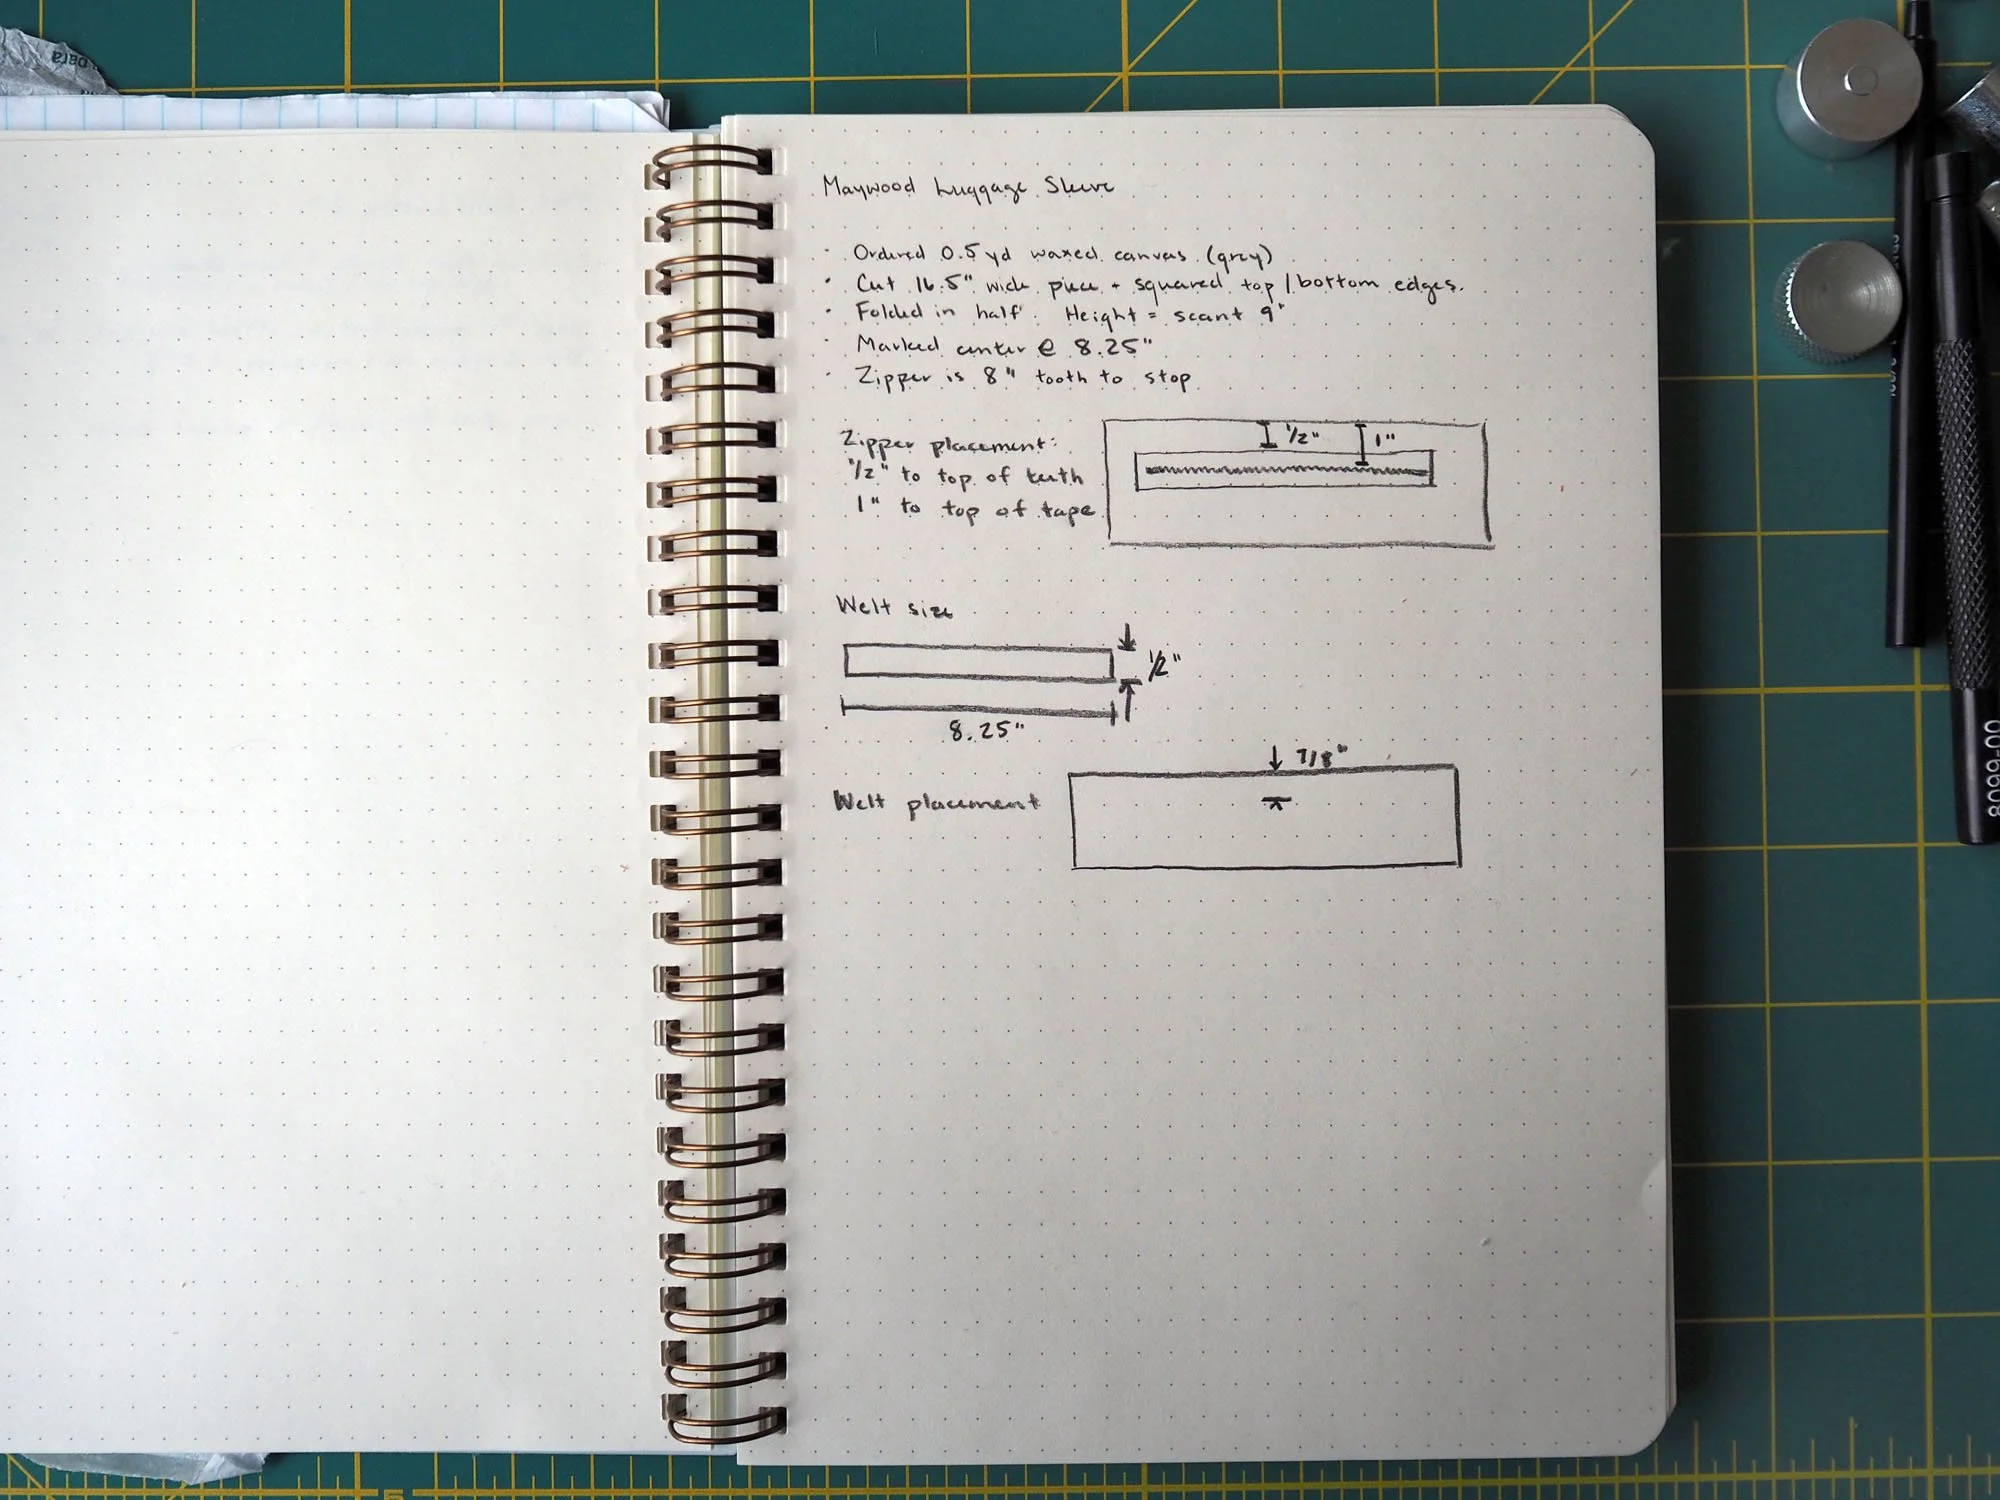 Maywood Luggage Sleeve
· Ordered 0.5 yd waxed canvas (grey)
· Cut 16.5" wide piece + squared top/bottom edges.
· Folded in half. Height = scant 9"
· Marked center @ 8.25"
· Zipper is 8" tooth to stop
Zipper placement:
1/2" to top of teeth
1" to top of tape
1/2" 1"
Welt size
1/2"
8.25"
7/8"
Welt placement
8099-00